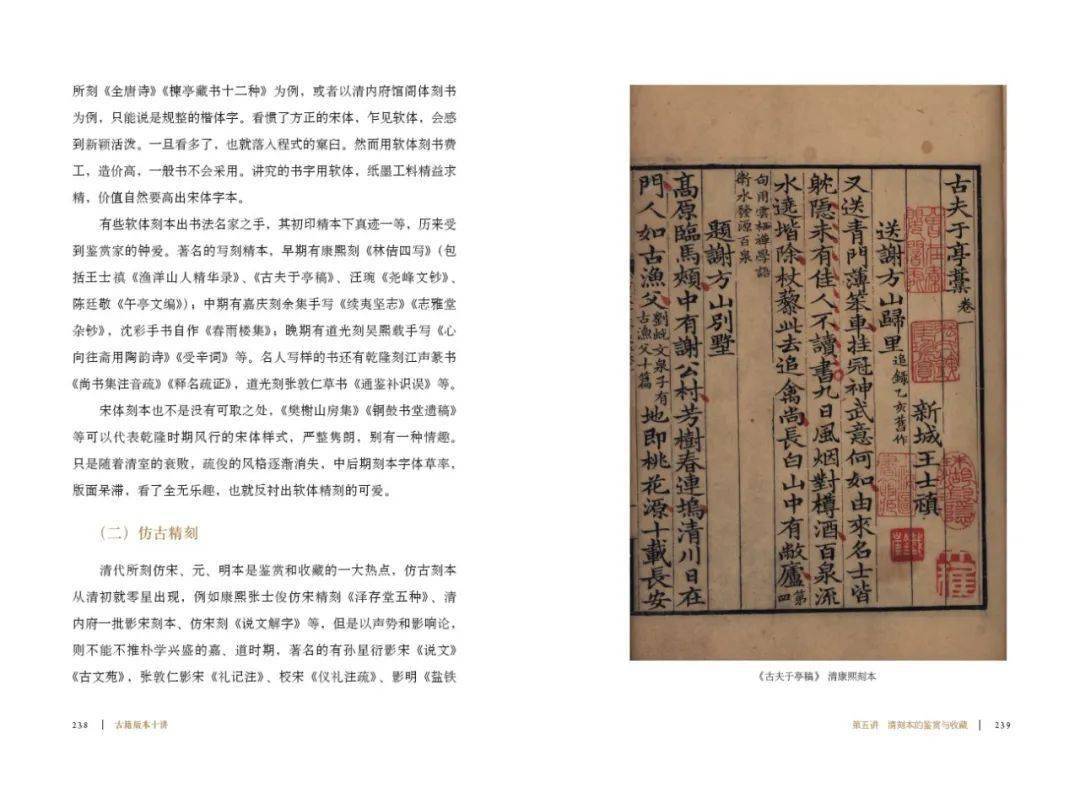 所刻《全唐诗》《楝亭藏书十二种》为例，或者以清内府馆阁体刻书
为例，只能说是规整的楷体字。看惯了方正的宋体，乍见软体，会感
到新颖活泼。一旦看多了，也就落入程式的窠臼。然而用软体刻书费
工，造价高，一般书不会采用。讲究的书字用软体，纸墨工料精益求
精，价值自然要高出宋体字本。
有些软体刻本出书法名家之手，其初印精本下真迹一等，历来受
到鉴赏家的钟爱。著名的写刻精本，早期有康熙刻《林佶四写》（包
括王士禛《渔洋山人精华录》、《古夫于亭稿》、汪琬《尧峰文钞》、
陈廷敬《午亭文编》）；中期有嘉庆刻余集手写《续夷坚志》《志雅堂
杂钞》，沈彩手书自作《春雨楼集》；晚期有道光刻吴熙载手写《心
向往斋用陶韵诗》《受辛词》等。名人写样的书还有乾隆刻江声篆书
《尚书集注音疏》《释名疏证》，道光刻张敦仁草书《通鉴补识误》等。
宋体刻本也不是没有可取之处，《樊榭山房集》《铜鼓书堂遗稿》
等可以代表乾隆时期风行的宋体样式，严整隽朗，别有一种情趣。
只是随着清室的衰败，疏俊的风格逐渐消失，中后期刻本字体草率，
版面呆滞，看了全无乐趣，也就反衬出软体精刻的可爱。
（二）仿古精刻
清代所刻仿宋、元、明本是鉴赏和收藏的一大热点，仿古刻本
从清初就零星出现，例如康熙张士俊仿宋精刻《泽存堂五种》、清
内府一批影宋刻本、仿宋刻《说文解字》等，但是以声势和影响论，
则不能不推朴学兴盛的嘉、道时期，著名的有孙星衍影宋《说文》
《古文苑》，张敦仁影宋《礼记注》、校宋《仪礼注疏》、影明《盐铁
238
古籍版本十讲
古夫于亭稾卷一
新城王士禛
送謝方山歸里追錄乙亥舊作
又送青門薄笨車挂冠神武意何如由來名士皆
躭隱未有佳人不讀書九日風烟對樽酒百泉流
水遶堦除杖藜此去追禽尚長白山中有敝廬第四
句用雲栖禪學語
衛水發源百泉
題謝方山別墅
高原臨馬頰中有謝公村芳樹春連塢清川日在
門人如古漁父劉㟮文泉子有古漁父十篇地即桃花源十載長安
《古夫于亭稿》 清康熙刻本
第五讲 清刻本的鉴赏与收藏
239